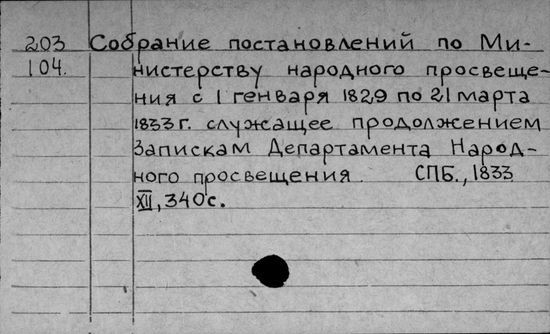 203 Собрание постановлений по Ми-
104. нистерству народного просвеще-
ния с 1 генваря 1829 по 21 марта
1833 г. служащее продолжением
Запискам Департамента Народ-
ного просвещения. СПБ., 1833
XII, 340 с.